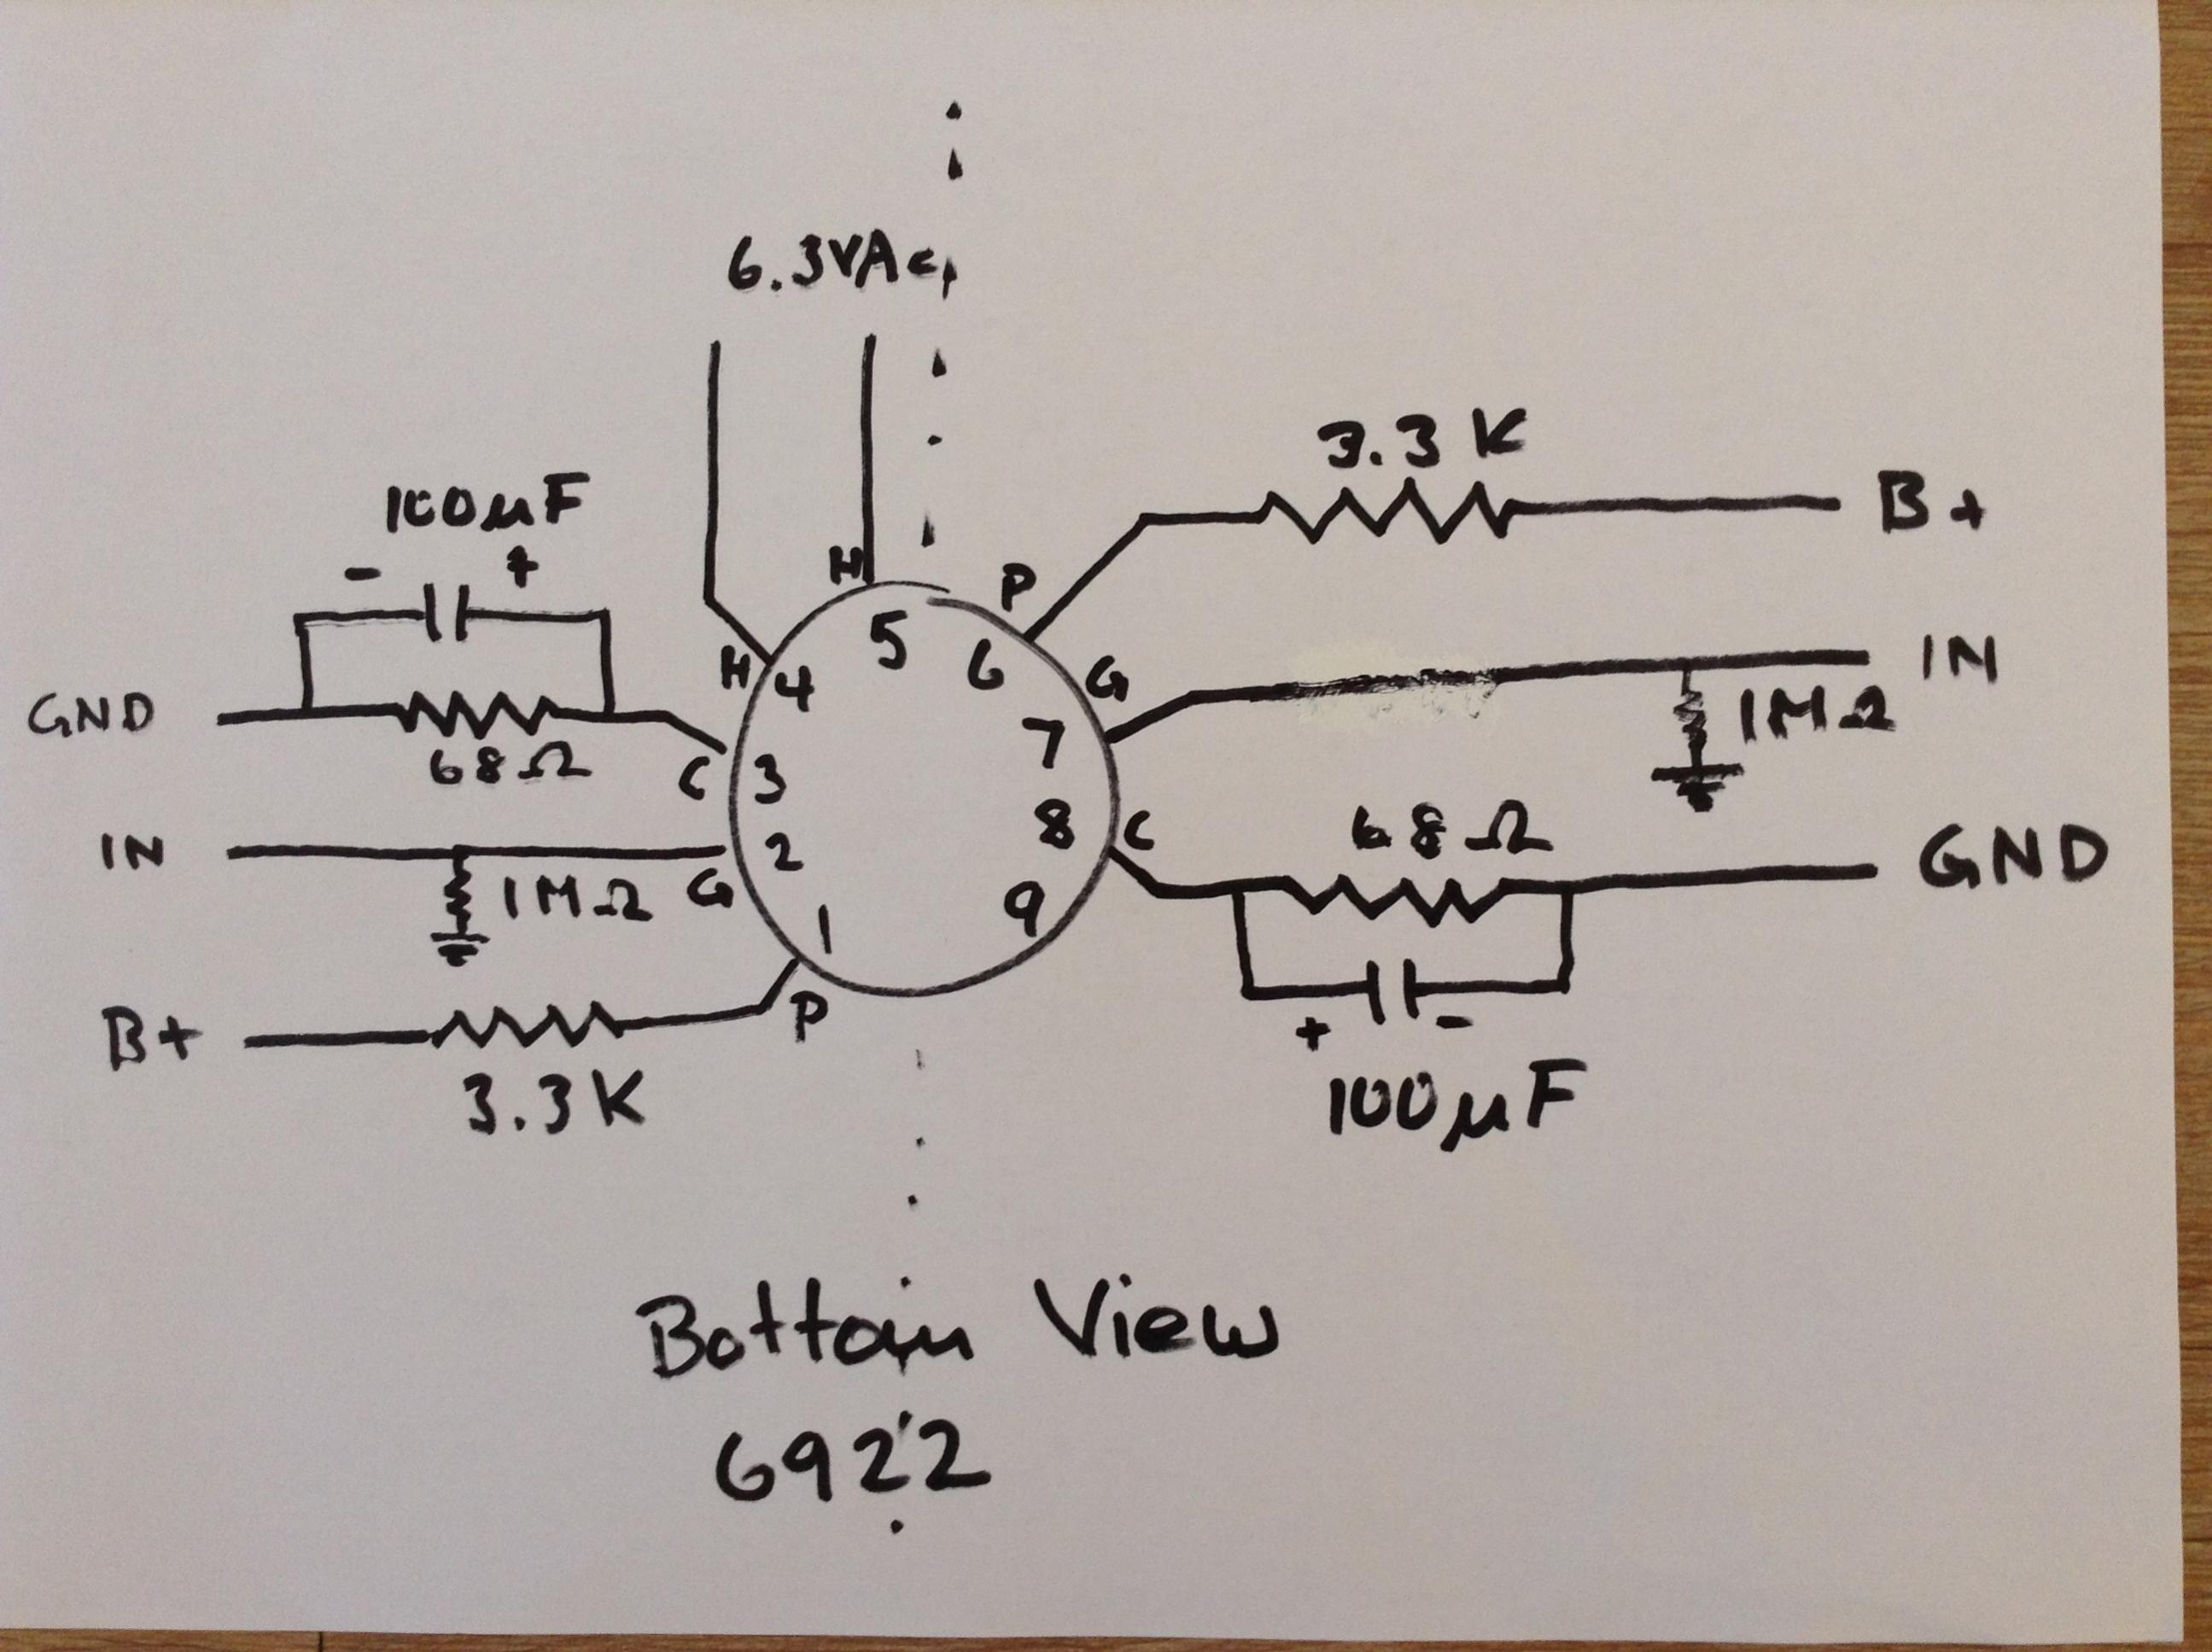 6.3VAC
3.3K
B+
100µF
- +
H
P
IN
H
G
4
5
6
1MΩ
GND
68Ω
C
3
7
68Ω
IN
1MΩ
G
2
8
C
GND
1
9
B+
P
+ -
3.3K
100µF
Bottom View
6922